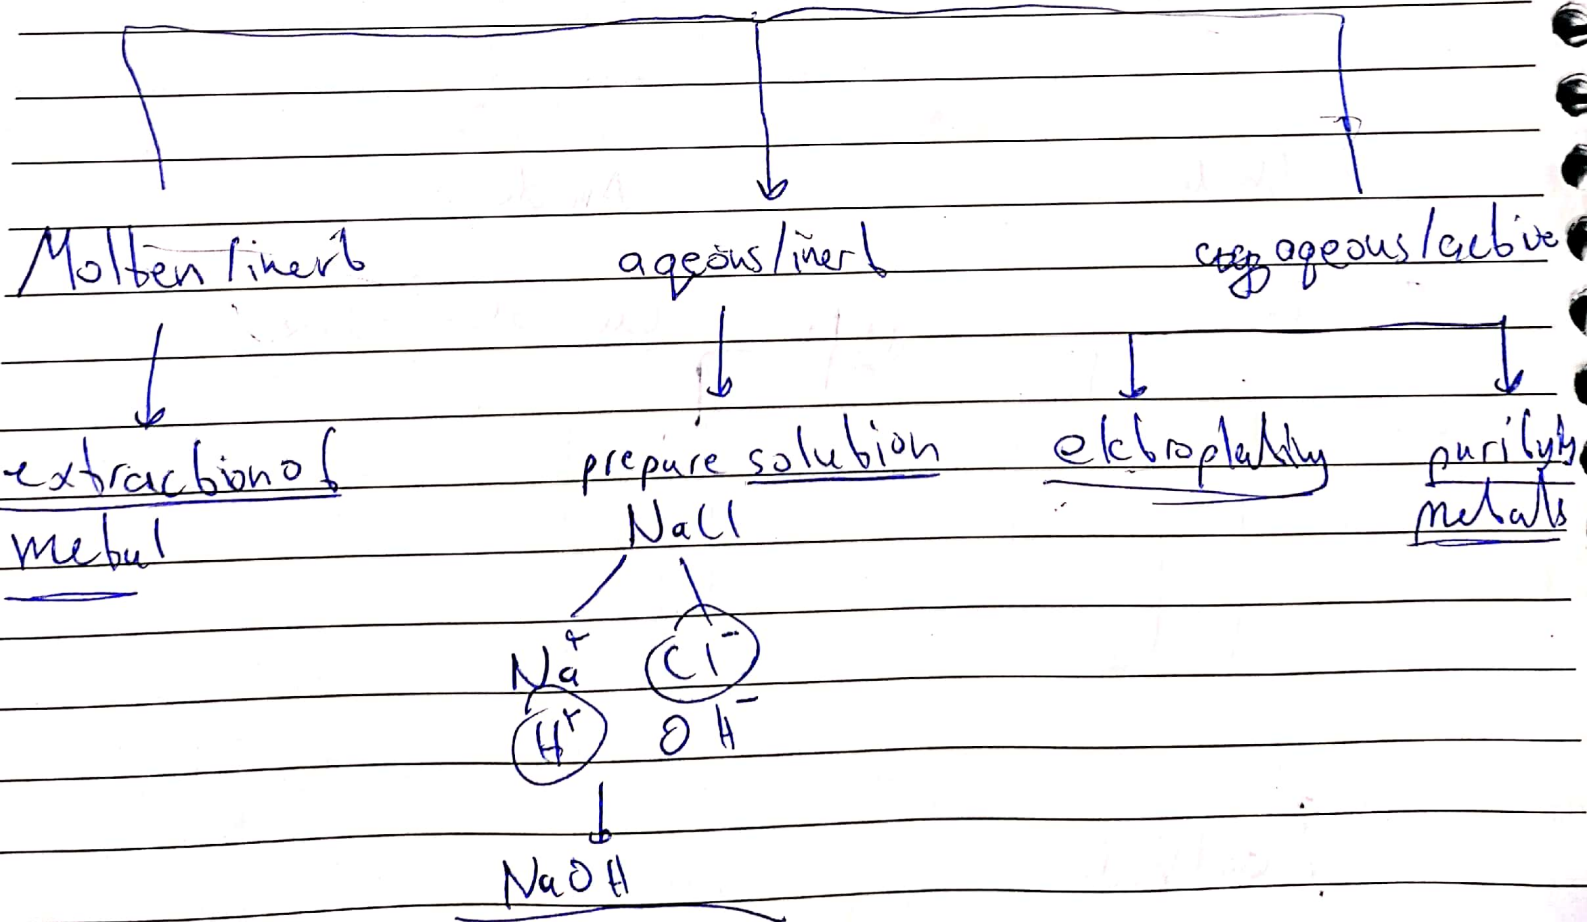 Molten/inert aqeous/inert aqeous/active
extraction of prepare solution elctroplating purifying
metal NaCl metals
Na⁺ Cl⁻
H⁺ OH⁻
NaOH